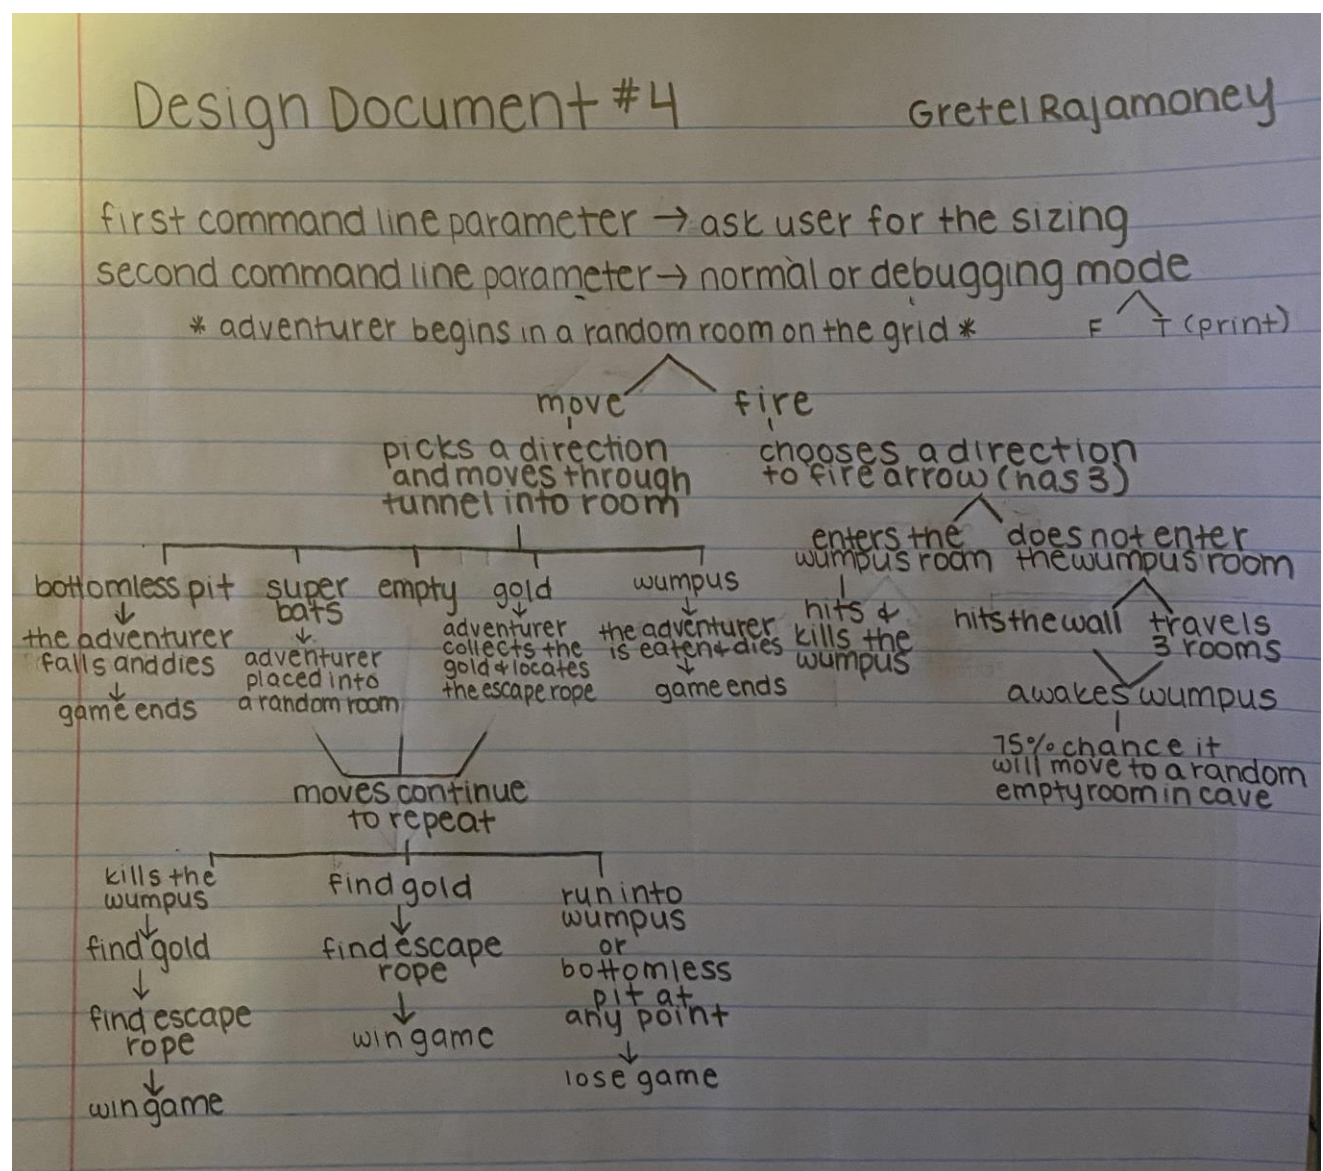 Design Document #4
Gretel Rajamoney
first command line parameter → ask user for the sizing
second command line parameter → normal or debugging mode
F T (print)
* adventurer begins in a random room on the grid *
move
picks a direction
and moves through
tunnel into room
bottomless pit
↓
the adventurer
falls and dies
↓
game ends
super
bats
↓
adventurer
placed into
a random room
empty
gold
↓
adventurer
collects the
gold & locates
the escape rope
wumpus
↓
the adventurer
is eaten & dies
↓
game ends
fire
chooses a direction
to fire arrow (has 3)
enters the
wumpus room
hits &
kills the
wumpus
does not enter
the wumpus room
hits the wall
travels
3 rooms
awakes wumpus
75% chance it
will move to a random
empty room in cave
moves continue
to repeat
kills the
wumpus
↓
find gold
↓
find escape
rope
↓
win game
find gold
↓
find escape
rope
↓
win game
run into
wumpus
or
bottomless
pit at
any point
↓
lose game